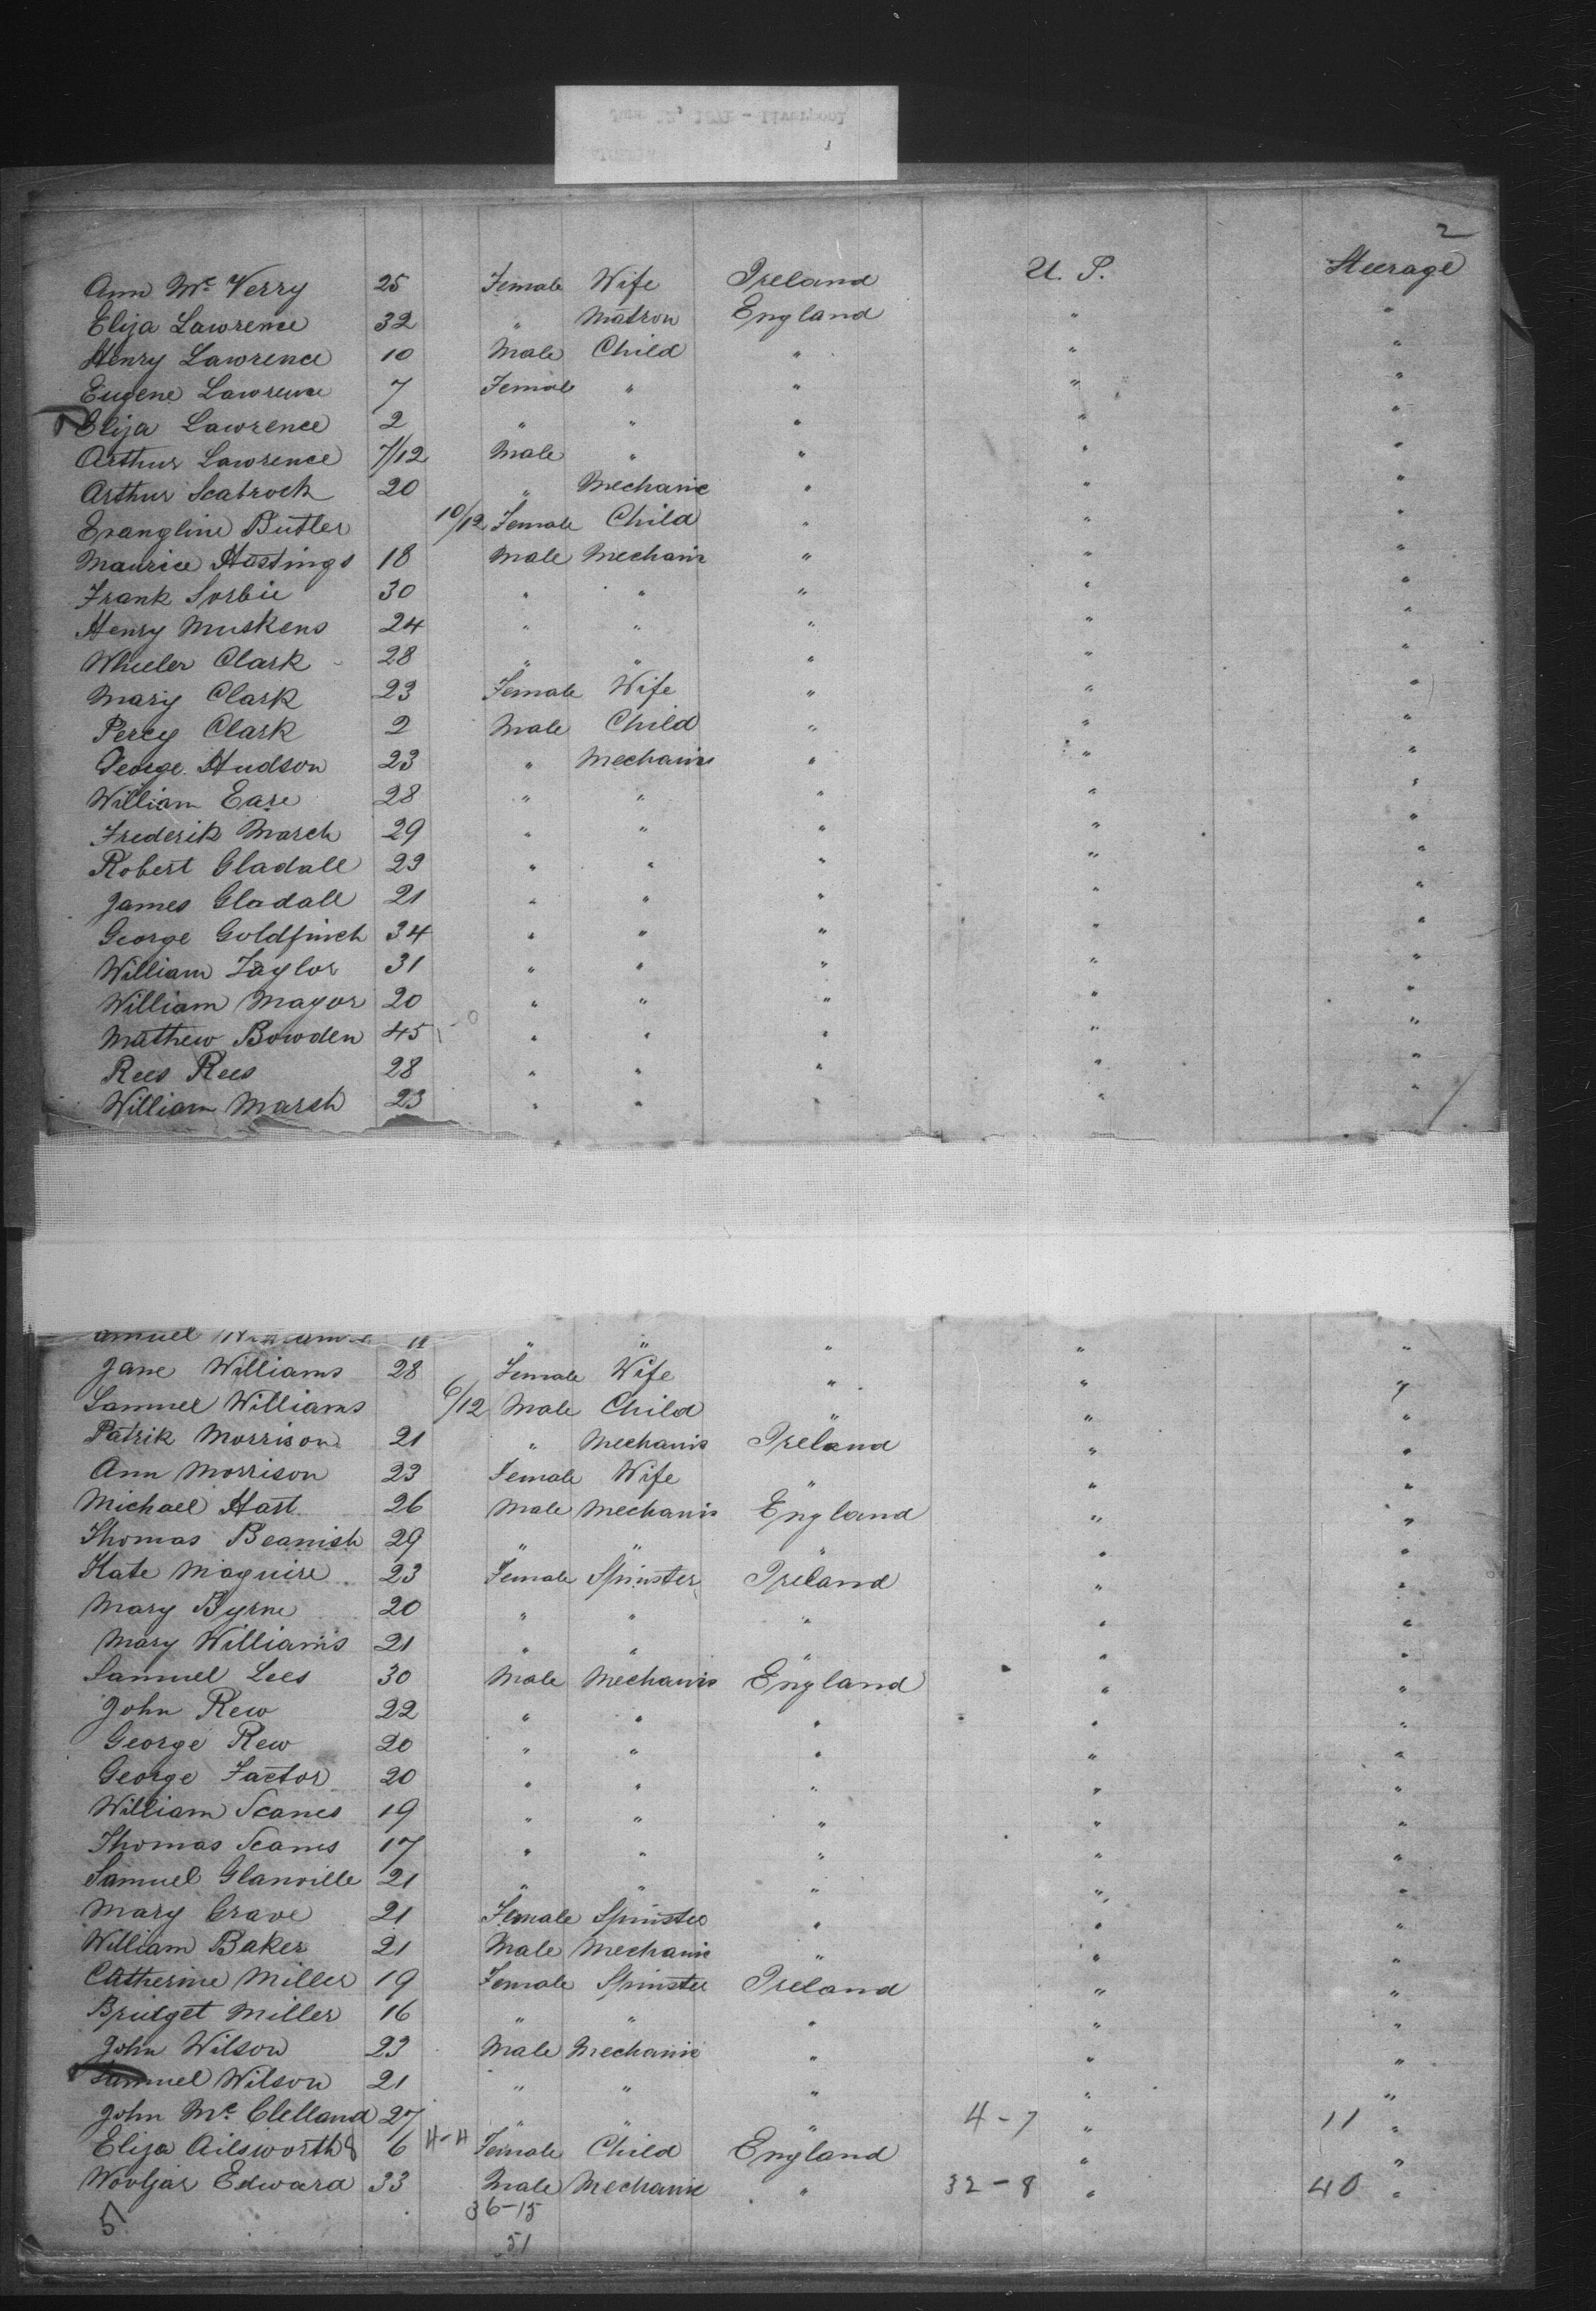 2
Ann Mc Verry 25 Female Wife Ireland U. S. Steerage
Eliza Lawrence 32 " Matron England " "
Henry Lawrence 10 Male Child " " "
Eugene Lawrence 7 Female " " " "
Eliza Lawrence 2 " " " " "
Arthur Lawrence 7/12 Male " " " "
Arthur Seabrock 20 " Mechanic " " "
Evangline Butler 10/12 Female Child " " "
Maurice Hastings 18 Male Mechanic " " "
Frank Sorbie 30 " " " " "
Henry Muskens 24 " " " " "
Wheeler Clark 28 " " " " "
Mary Clark 23 Female Wife " " "
Percy Clark 2 Male Child " " "
George Hudson 23 " Mechanic " " "
William Ease 28 " " " " "
Frederik March 29 " " " " "
Robert Gladall 23 " " " " "
James Gladall 21 " " " " "
George Goldfinch 34 " " " " "
William Taylor 31 " " " " "
William Mayor 20 " " " " "
Mathew Bowden 45 " " " " "
Rees Rees 28 " " " " "
William Marsh 23 " " " " "
amuel " " " " "
Jane Williams 28 Female Wife " " "
Samuel Williams 6/12 Male Child " " "
Patrik Morrison 21 " Mechanic Ireland " "
Ann Morrison 23 Female Wife " " "
Michael Hart 26 Male Mechanic England " "
Thomas Beamish 29 " " " " "
Kate Maguire 23 Female Spinster Ireland " "
Mary Byrne 20 " " " " "
Mary Williams 21 " " " " "
Samuel Lees 30 Male Mechanic England " "
John Rew 22 " " " " "
George Rew 20 " " " " "
George Factor 20 " " " " "
William Scanes 19 " " " " "
Thomas Scanes 17 " " " " "
Samuel Glanville 21 " " " " "
Mary Grave 21 Female Spinster " " "
William Baker 21 Male Mechanic " " "
Catherine Miller 19 Female Spinster Ireland " "
Bridget Miller 16 " " " " "
John Wilson 23 Male Mechanic " " "
Samuel Wilson 21 " " " " "
John Mc Clelland 27 " " " 4-7 " 11 "
Eliza Ailsworth 8 6 4-4 Female Child England " "
Wovljar Edward 33 Male Mechanic " 32-8 " 40 "
51 36-15
51